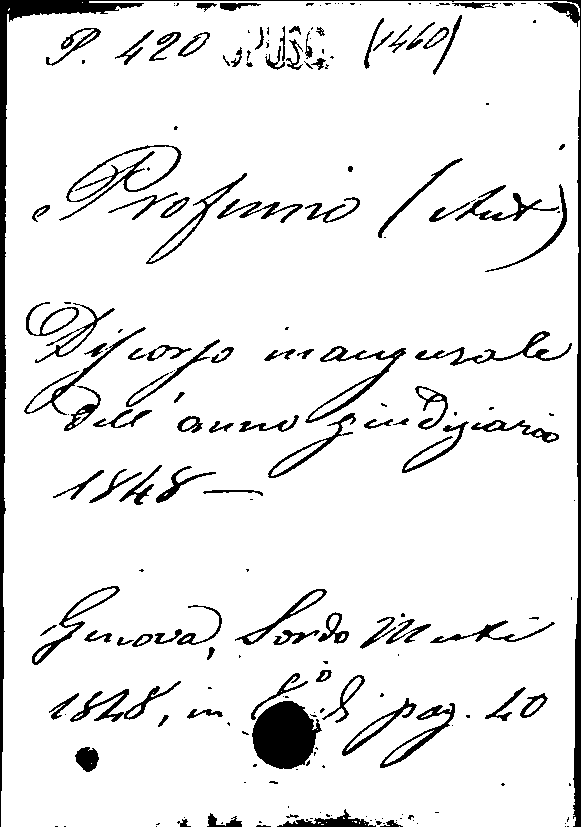 P. 420 OPUSC. (1460)
Profumo (Ant)
Discorso inaugurale
dell'anno giudiziario
1848 —
Genova, Sordo Muti
1848, in 8º di pag. 40